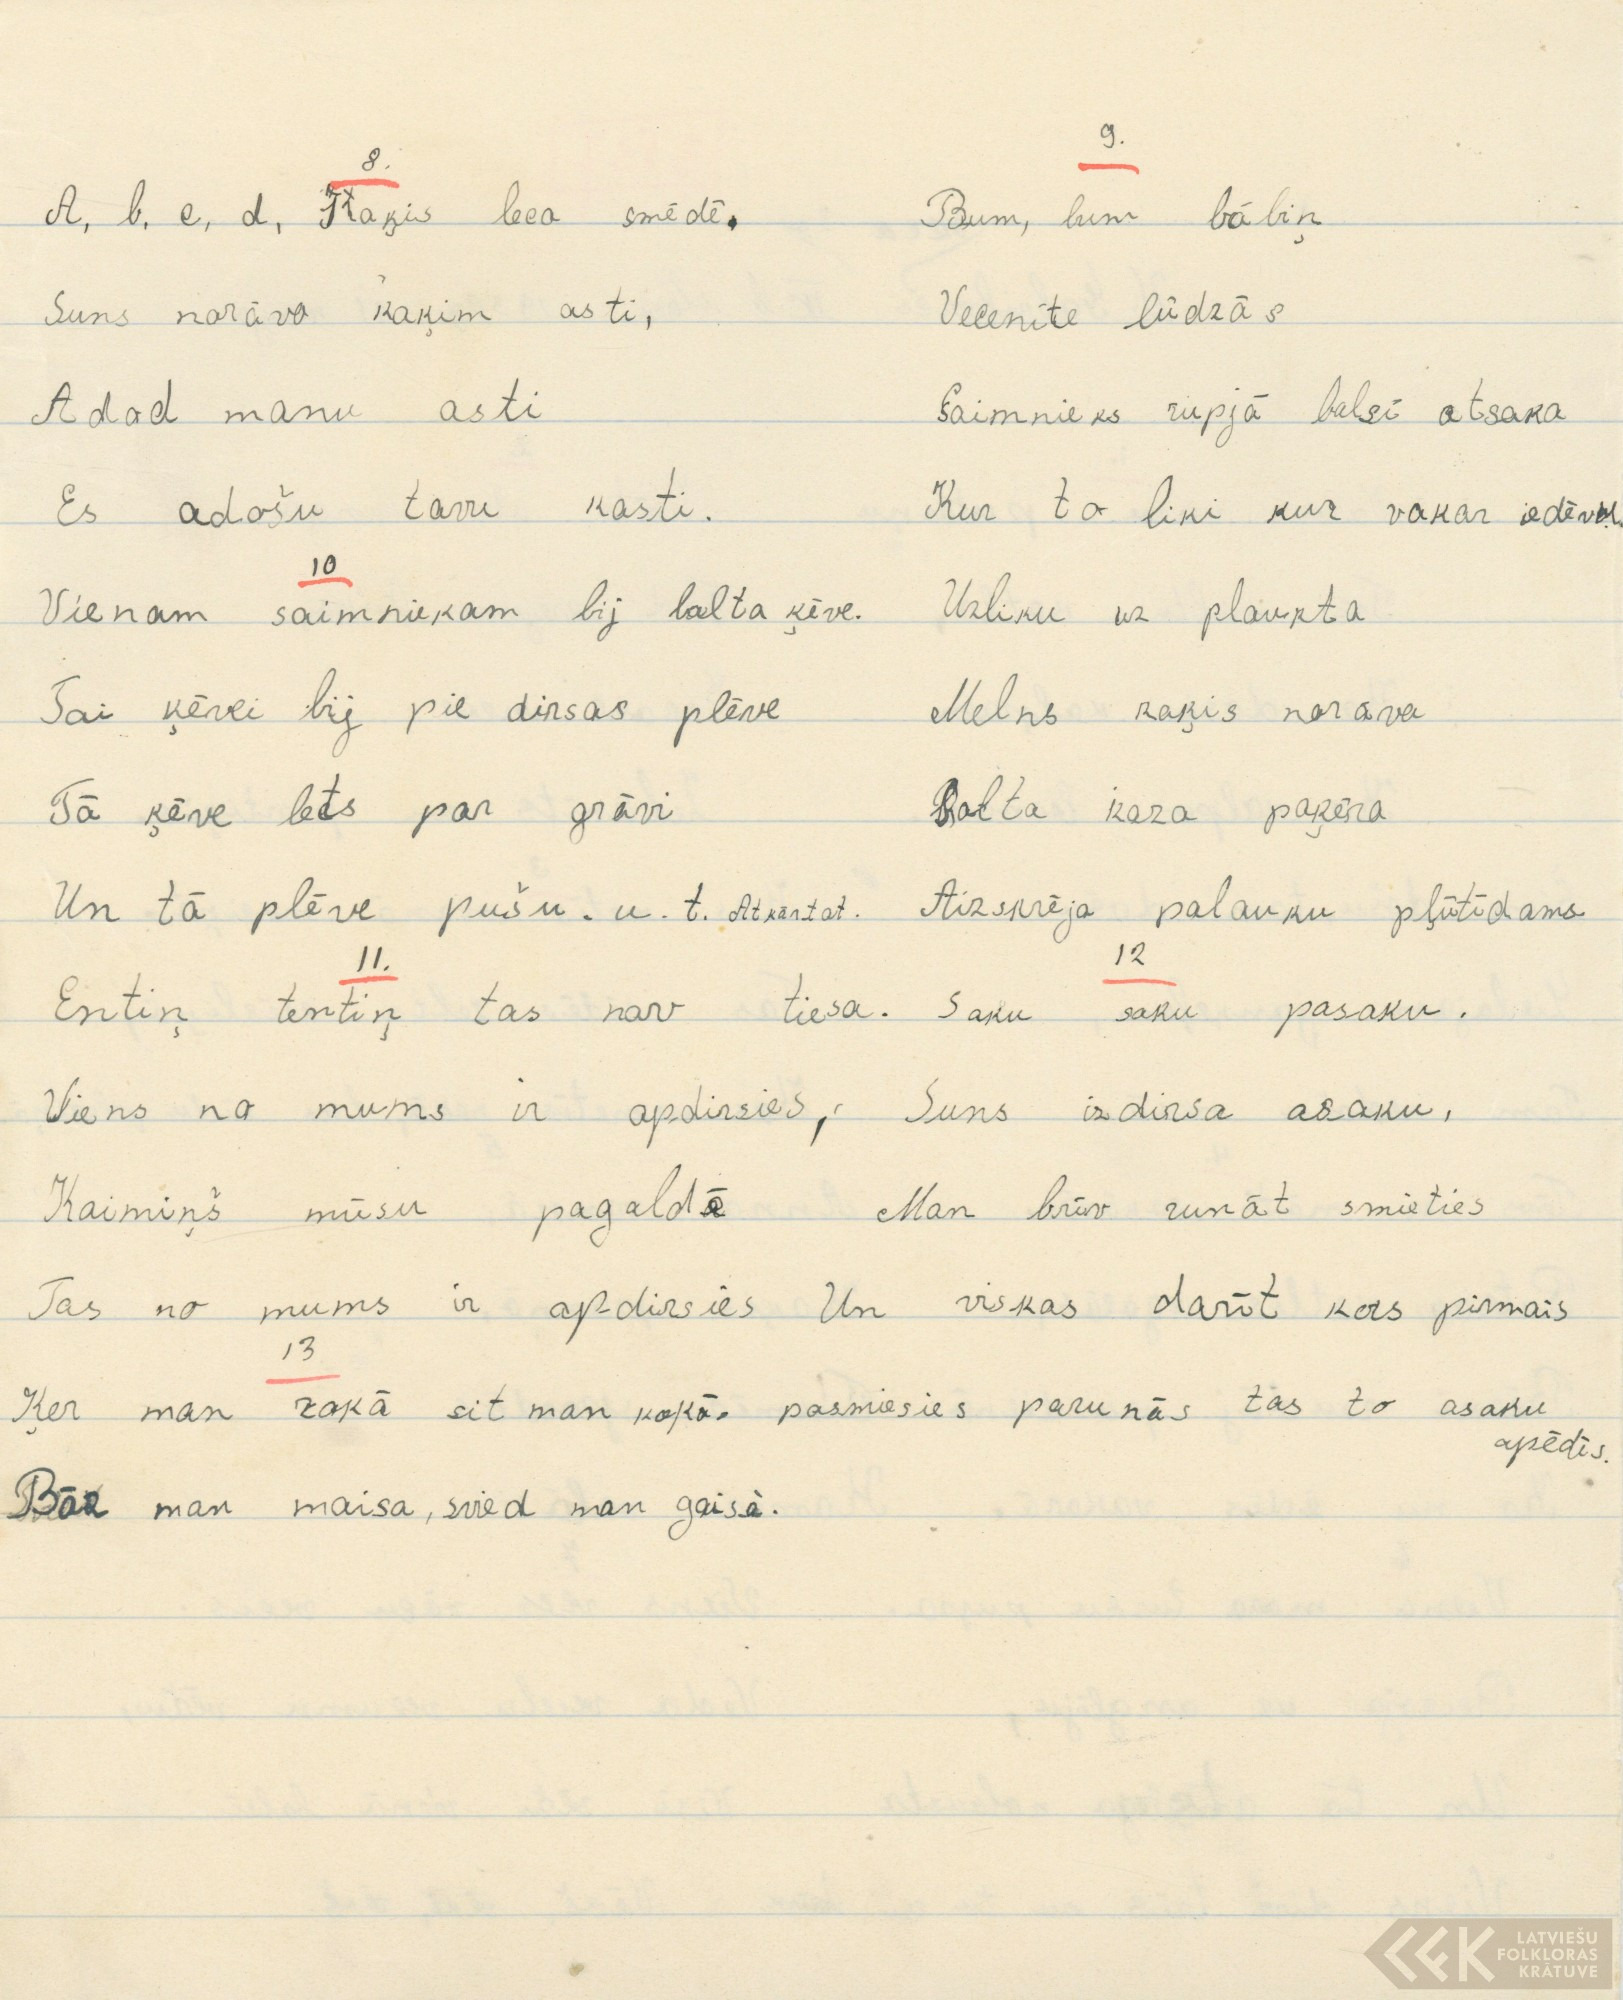 8.
A, b, c, d, Kaķis leca smēdē.
Suns norāva kaķim asti,
Adod manu asti
Es adošu tavu kasti.
9.
Bum, bum bābiņ
Vecenīte lūdzās
Saimnieks rupjā balsī atsaka
Kur to liki kur vakar iedēvu.
Uzliku uz plaukta
Melns kaķis norava
Balta kaza paķēra
Aizskrēja palauku pļūtīdams
10
Vienam saimniekam bij balta ķēve.
Tai ķēvei bij pie dirsas plēve
Tā ķēve lets par grāvi
Un tā plēve pušu. u. t. Atkārtot.
11.
Entiņ tentiņ tas nav tiesa.
Viens no mums ir apdirsies,
Kaimiņš mūsu pagaldē
Tas no mums ir apdirsies
12
Saku saku pasaku.
Suns izdirsa asaku,
Man brīv runāt smieties
Un viskas darīt kas pirmais
pasmiesies parunās tas to asaku
apēdīs.
13
Ķer man rokā sit man kokā.
Bāz man maisa, svied man gaisā.
LATVIEŠU
FOLKLORAS
KRĀTUVE